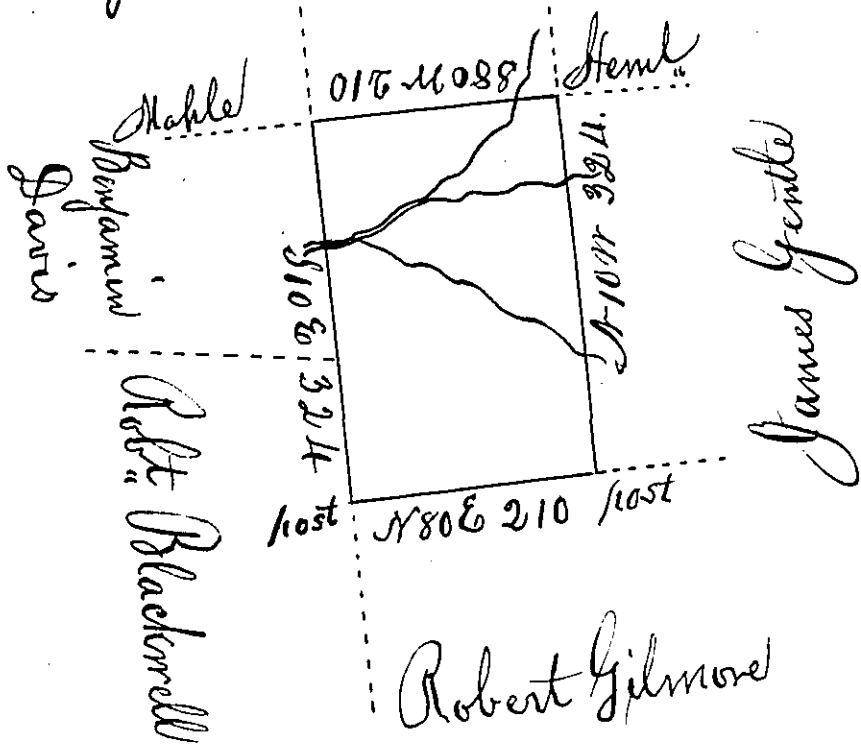 S80W 210
Heml"
Mahle
Benjamin
Davis
S10E 324
N10W 324.
James Gentle
Robt" Blackwell
post
N80E 210
post
Robert Gilmore